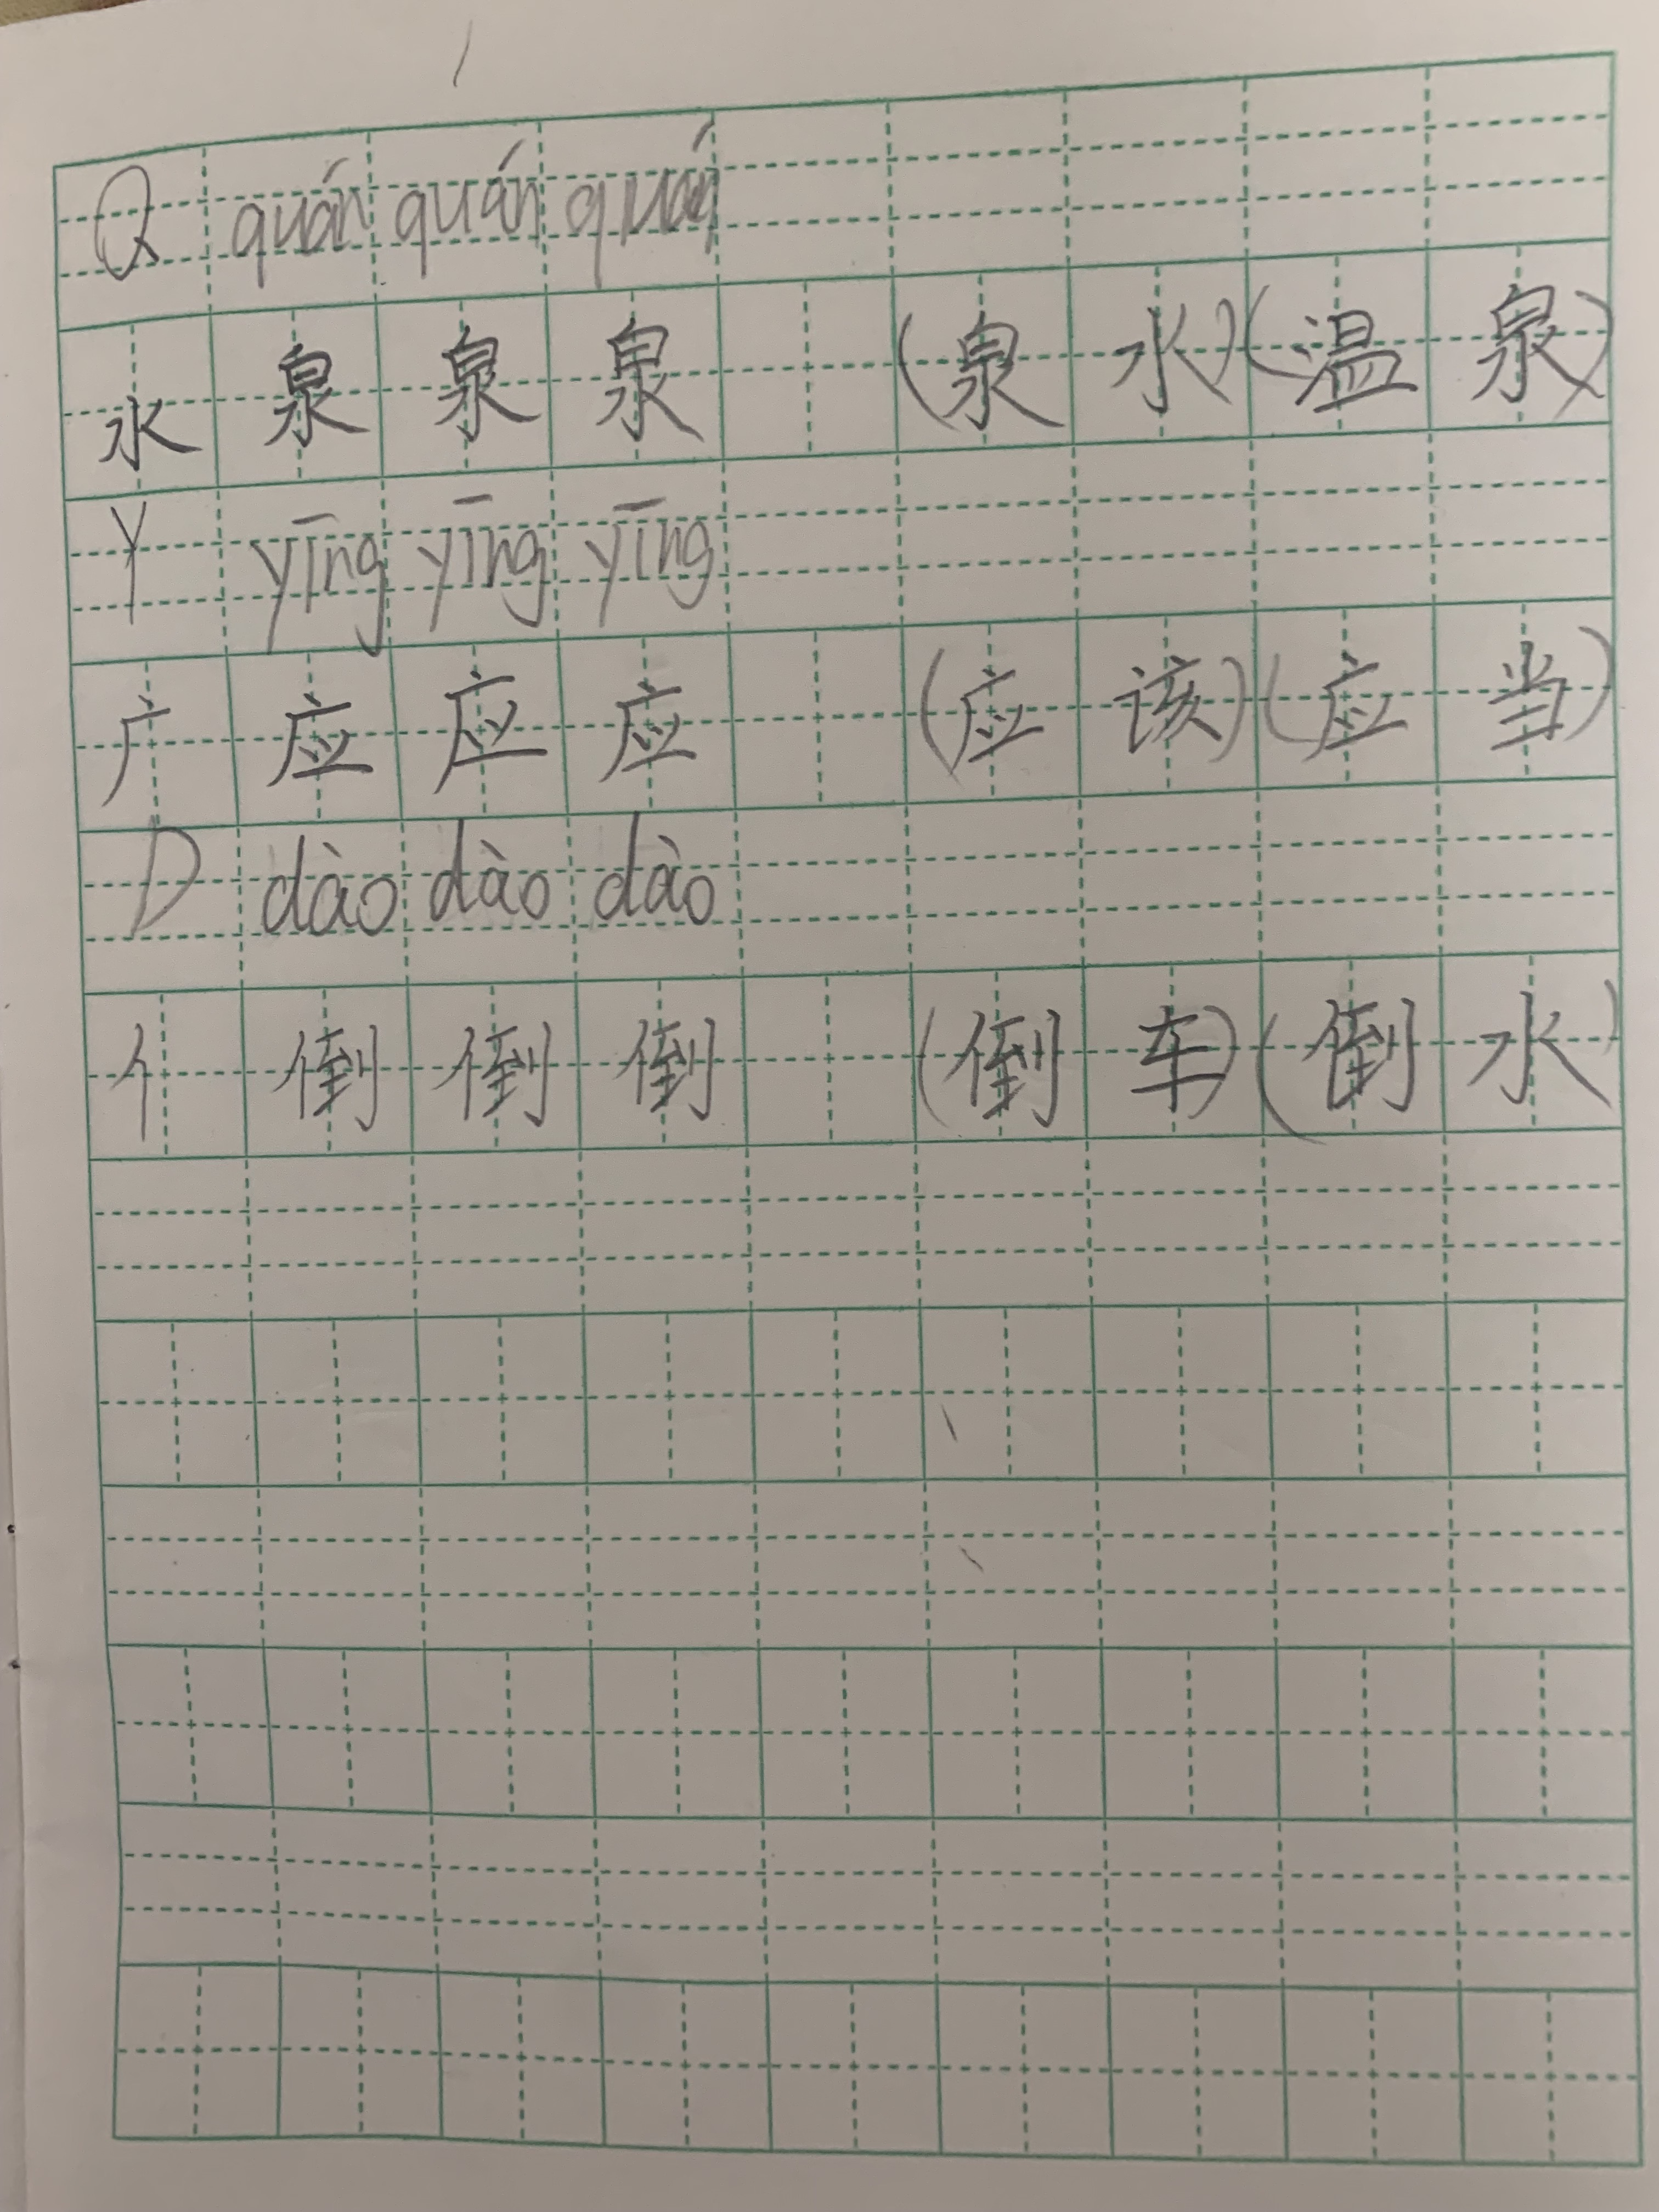 Q quán quán quán
水 泉 泉 泉 (泉水)(温泉)
Y yīng yīng yīng
广 应 应 应 (应该)(应当)
D dào dào dào
亻 倒 倒 倒 (倒车)(倒水)